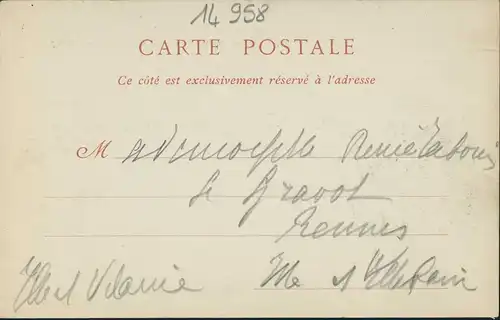 14 958
CARTE POSTALE
Ce côté est exclusivement réservé à l'adresse
Mademoiselle Renée
le Gravot
Rennes
Ille et Vilaine Ille et Vilaine